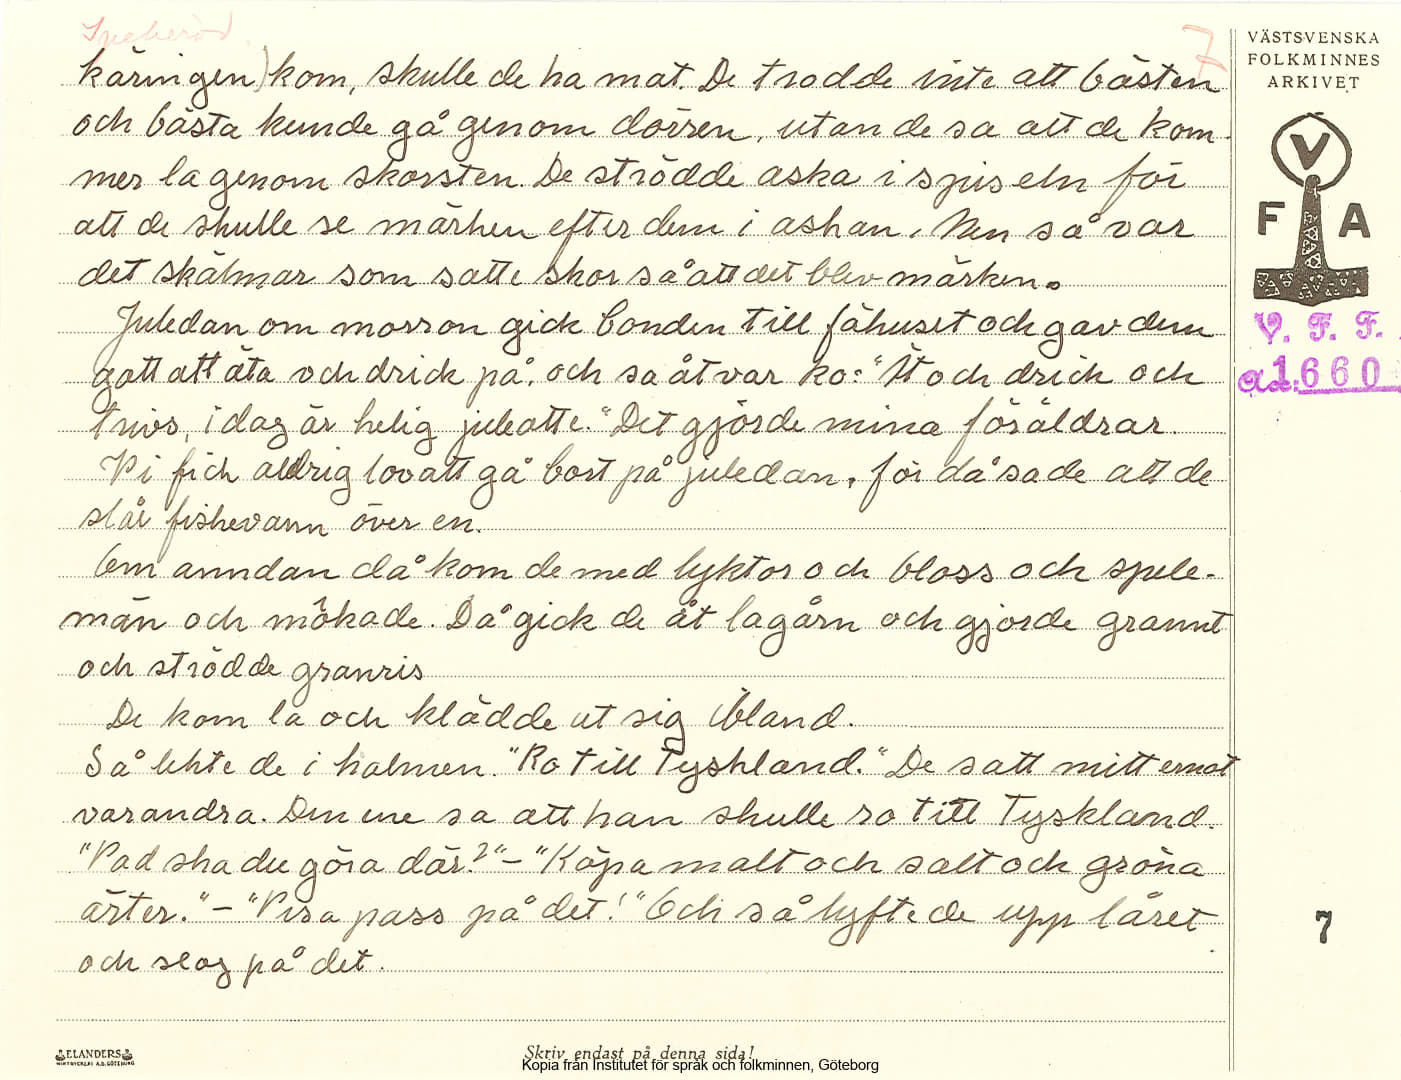 Spekeröd.
7
käringen) kom, skulle de ha mat. De trodde inte att bästen
och bästa kunde gå genom dörren, utan de sa att de kom-
mer la genom skorsten. De strödde aska i spiseln för
att de skulle se märken efter dem i askan. Men så var
det skälmar som satte skor så att det blev märken.
Juledan om morron gick bonden till fähuset och gav dem
gott att äta och drick på, och sa åt var ko: "Ät och drick och
trivs, i dag är helig juleotte." Det gjorde mina föräldrar.
Vi fick aldrig lov att gå bort på juledan, för då sade att de
slår fiskevann över en.
Om anndan då kom de med lyktor och bloss och spele-
män och mökade. Då gick de åt lagårn och gjorde grannt
och strödde granris
De kom la och klädde ut sig ibland.
Så lekte de i halmen. "Ro till Tyskland." De satt mitt emot
varandra. Den ene sa att han skulle ro till Tyskland.
"Vad ska du göra där?" – "Köpa malt och salt och gröna
ärter." – "Visa pass på det!" Och så lyfte de upp låret
och slog på det.
VÄSTSVENSKA
FOLKMINNES
ARKIVET
V
F A
V. F. F.
1660
7
ELANDERS
Skriv endast på denna sida!
Kopia från Institutet för språk och folkminnen, Göteborg